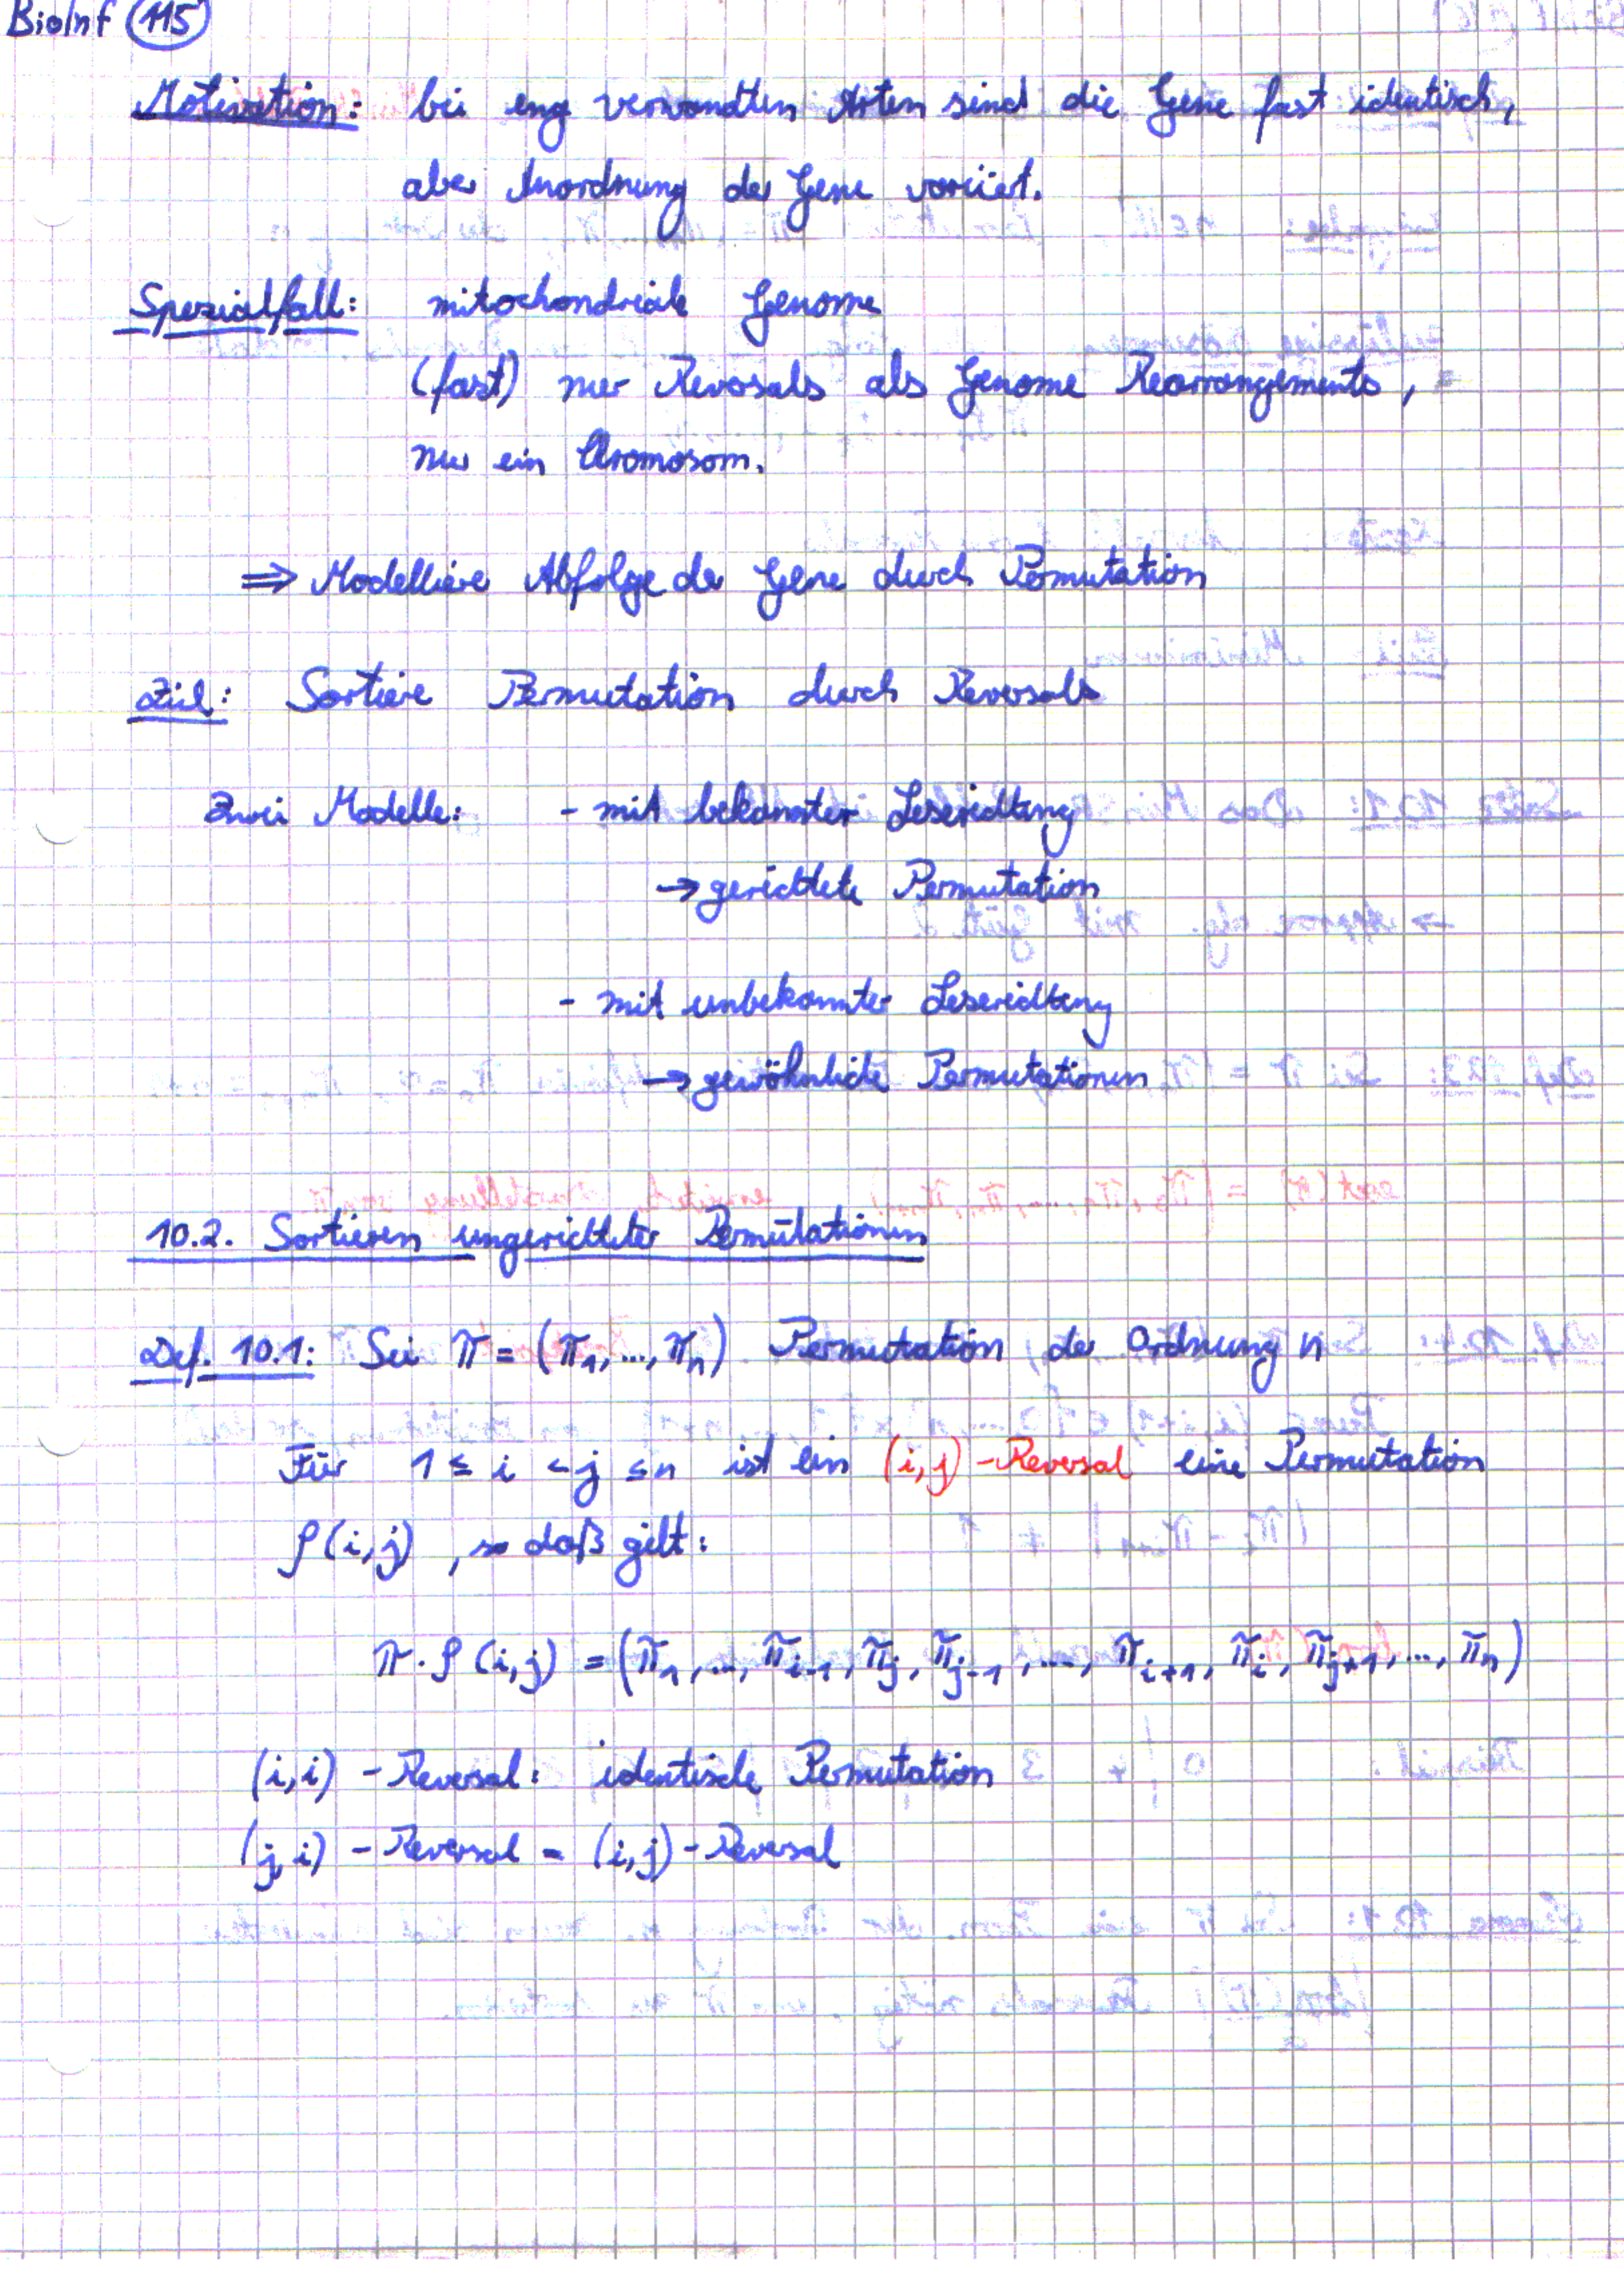 BioInf 115
Motivation: bei eng verwandten Arten sind die Gene fast identisch,
aber Anordnung der Gene variiert.
Spezialfall: mitochondriale Genome
(fast) nur Reversals als Genome Rearrangements,
nur ein Chromosom.
⇒ Modelliere Abfolge der Gene durch Permutation
Ziel: Sortiere Permutation durch Reversals
Zwei Modelle: - mit bekannter Leserichtung
→ gerichtete Permutation
- mit unbekannter Leserichtung
→ gewöhnliche Permutationen
10.2. Sortieren ungerichteter Permutationen
Def. 10.1: Sei π = (π₁, ..., πₙ) Permutation der Ordnung n
Für 1 ≤ i < j ≤ n ist ein (i,j)-Reversal eine Permutation
ρ(i,j), so daß gilt:
π·ρ(i,j) = (π₁, ..., π_{i-1}, π_j, π_{j-1}, ..., π_{i+1}, π_i, π_{j+1}, ..., π_n)
(i,i)-Reversal: identische Permutation
(j,i)-Reversal = (i,j)-Reversal